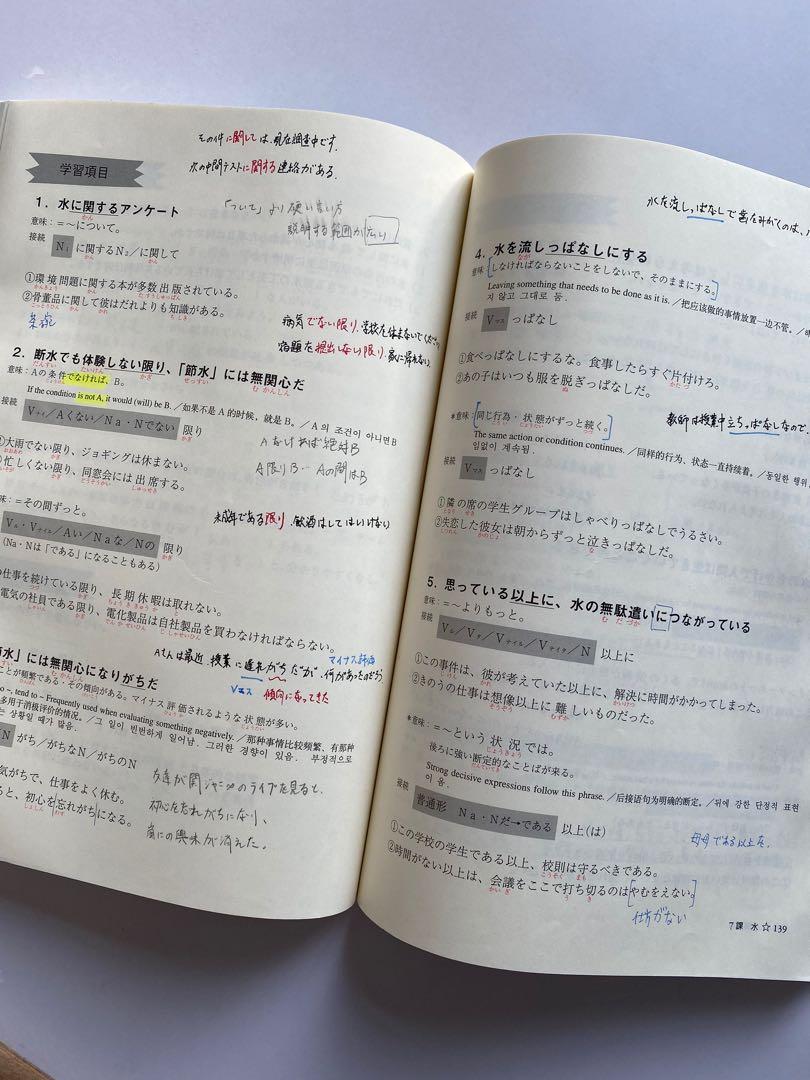 その件に関しては、現在調査中です.
次の中間テストに関する連絡がある.
学習項目
1. 水に関するアンケート
「ついて」より硬い言い方
説明する範囲が広い
意味:=~について。
接続 N₁ に関するN₂/に関して
①環境問題に関する本が多数出版されている。
②骨董品に関して彼はだれよりも知識がある。
病気でない限り、学校を休まないでください
宿題を提出しない限り、家に帰れない.
2. 断水でも体験しない限り、「節水」には無関心だ
意味:Aの条件でなければ、B。
If the condition is not A, it would (will) be B. /如果不是 A 的时候,就是 B。/A 의 조건이 아니면 B
接続 Vナイ/Aくない/Na・Nでない 限り
Aなければ絶対B
A限りB… Aの間はB
①大雨でない限り、ジョギングは休まない。
②忙しくない限り、同窓会には出席する。
味:=その間ずっと。
未成年である限り、飲酒はしてはいけない
Vル・Vナイ/Vテイル/Aい/Naな/Nの 限り
(Na・Nは「である」になることもある)
の仕事を続けている限り、長期休暇は取れない。
電気の社員である限り、電化製品は自社製品を買わなければならない。
Aさんは最近、授業に遅れがちだが、何があったのだろう
マイナス評価
Vマス 傾向になってきた
節水」には無関心になりがちだ
ことが頻繁である・その傾向がある。マイナス評価されるような状態が多い。
to ~, tend to ~ Frequently used when evaluating something negatively. /那种事情比较频繁、有那种
多用于消极评价的情况。/그 일이 빈번하게 일어남. 그러한 경향이 있음. 부정적으로
는 상황일 때가 많음.
N がち/がちなN/がちのN
気がちで、仕事をよく休む。
と、初心を忘れがちになる。
友達が関ジャニ∞のライブを見ると、
初心を忘れがちになり、
嵐にの興味が消えた.
水を流しっぱなしで歯をみがくのは、
4. 水を流しっぱなしにする
意味:しなければならないことをしないで、そのままにする。
Leaving something that needs to be done as it is. /把应该做的事情放置一边不管。/
지 않고 그대로 둠.
接続 Vマス っぱなし
①食べっぱなしにするな。食事したらすぐ片付けろ。
②あの子はいつも服を脱ぎっぱなしだ。
教師は授業中立ちっぱなしなので、
*意味:同じ行為・状態がずっと続く。
The same action or condition continues. /同样的行为、状态一直持续着。/동일한 행위,
임없이 계속됨.
接続 Vマス っぱなし
①隣の席の学生グループはしゃべりっぱなしでうるさい。
②失恋した彼女は朝からずっと泣きっぱなしだ。
5. 思っている以上に、水の無駄遣いにつながっている
意味:=~よりもっと。
Vル/Vタ/Vテイル/Vテイタ/N 以上に
①この事件は、彼が考えていた以上に、解決に時間がかかってしまった。
②きのうの仕事は想像以上に難しいものだった。
*意味:=~という状況では。
後ろに強い断定的なことばが来る。
Strong decisive expressions follow this phrase. /后接语句为明确的断定。/뒤에 강한 단정적 표현
이 옴.
接続 普通形 Na・Nだ→である 以上(は)
母母である以上を.
①この学校の学生である以上、校則は守るべきである。
②時間がない以上は、会議をここで打ち切るのはやむをえない。
仕方がない
7課 水☆139